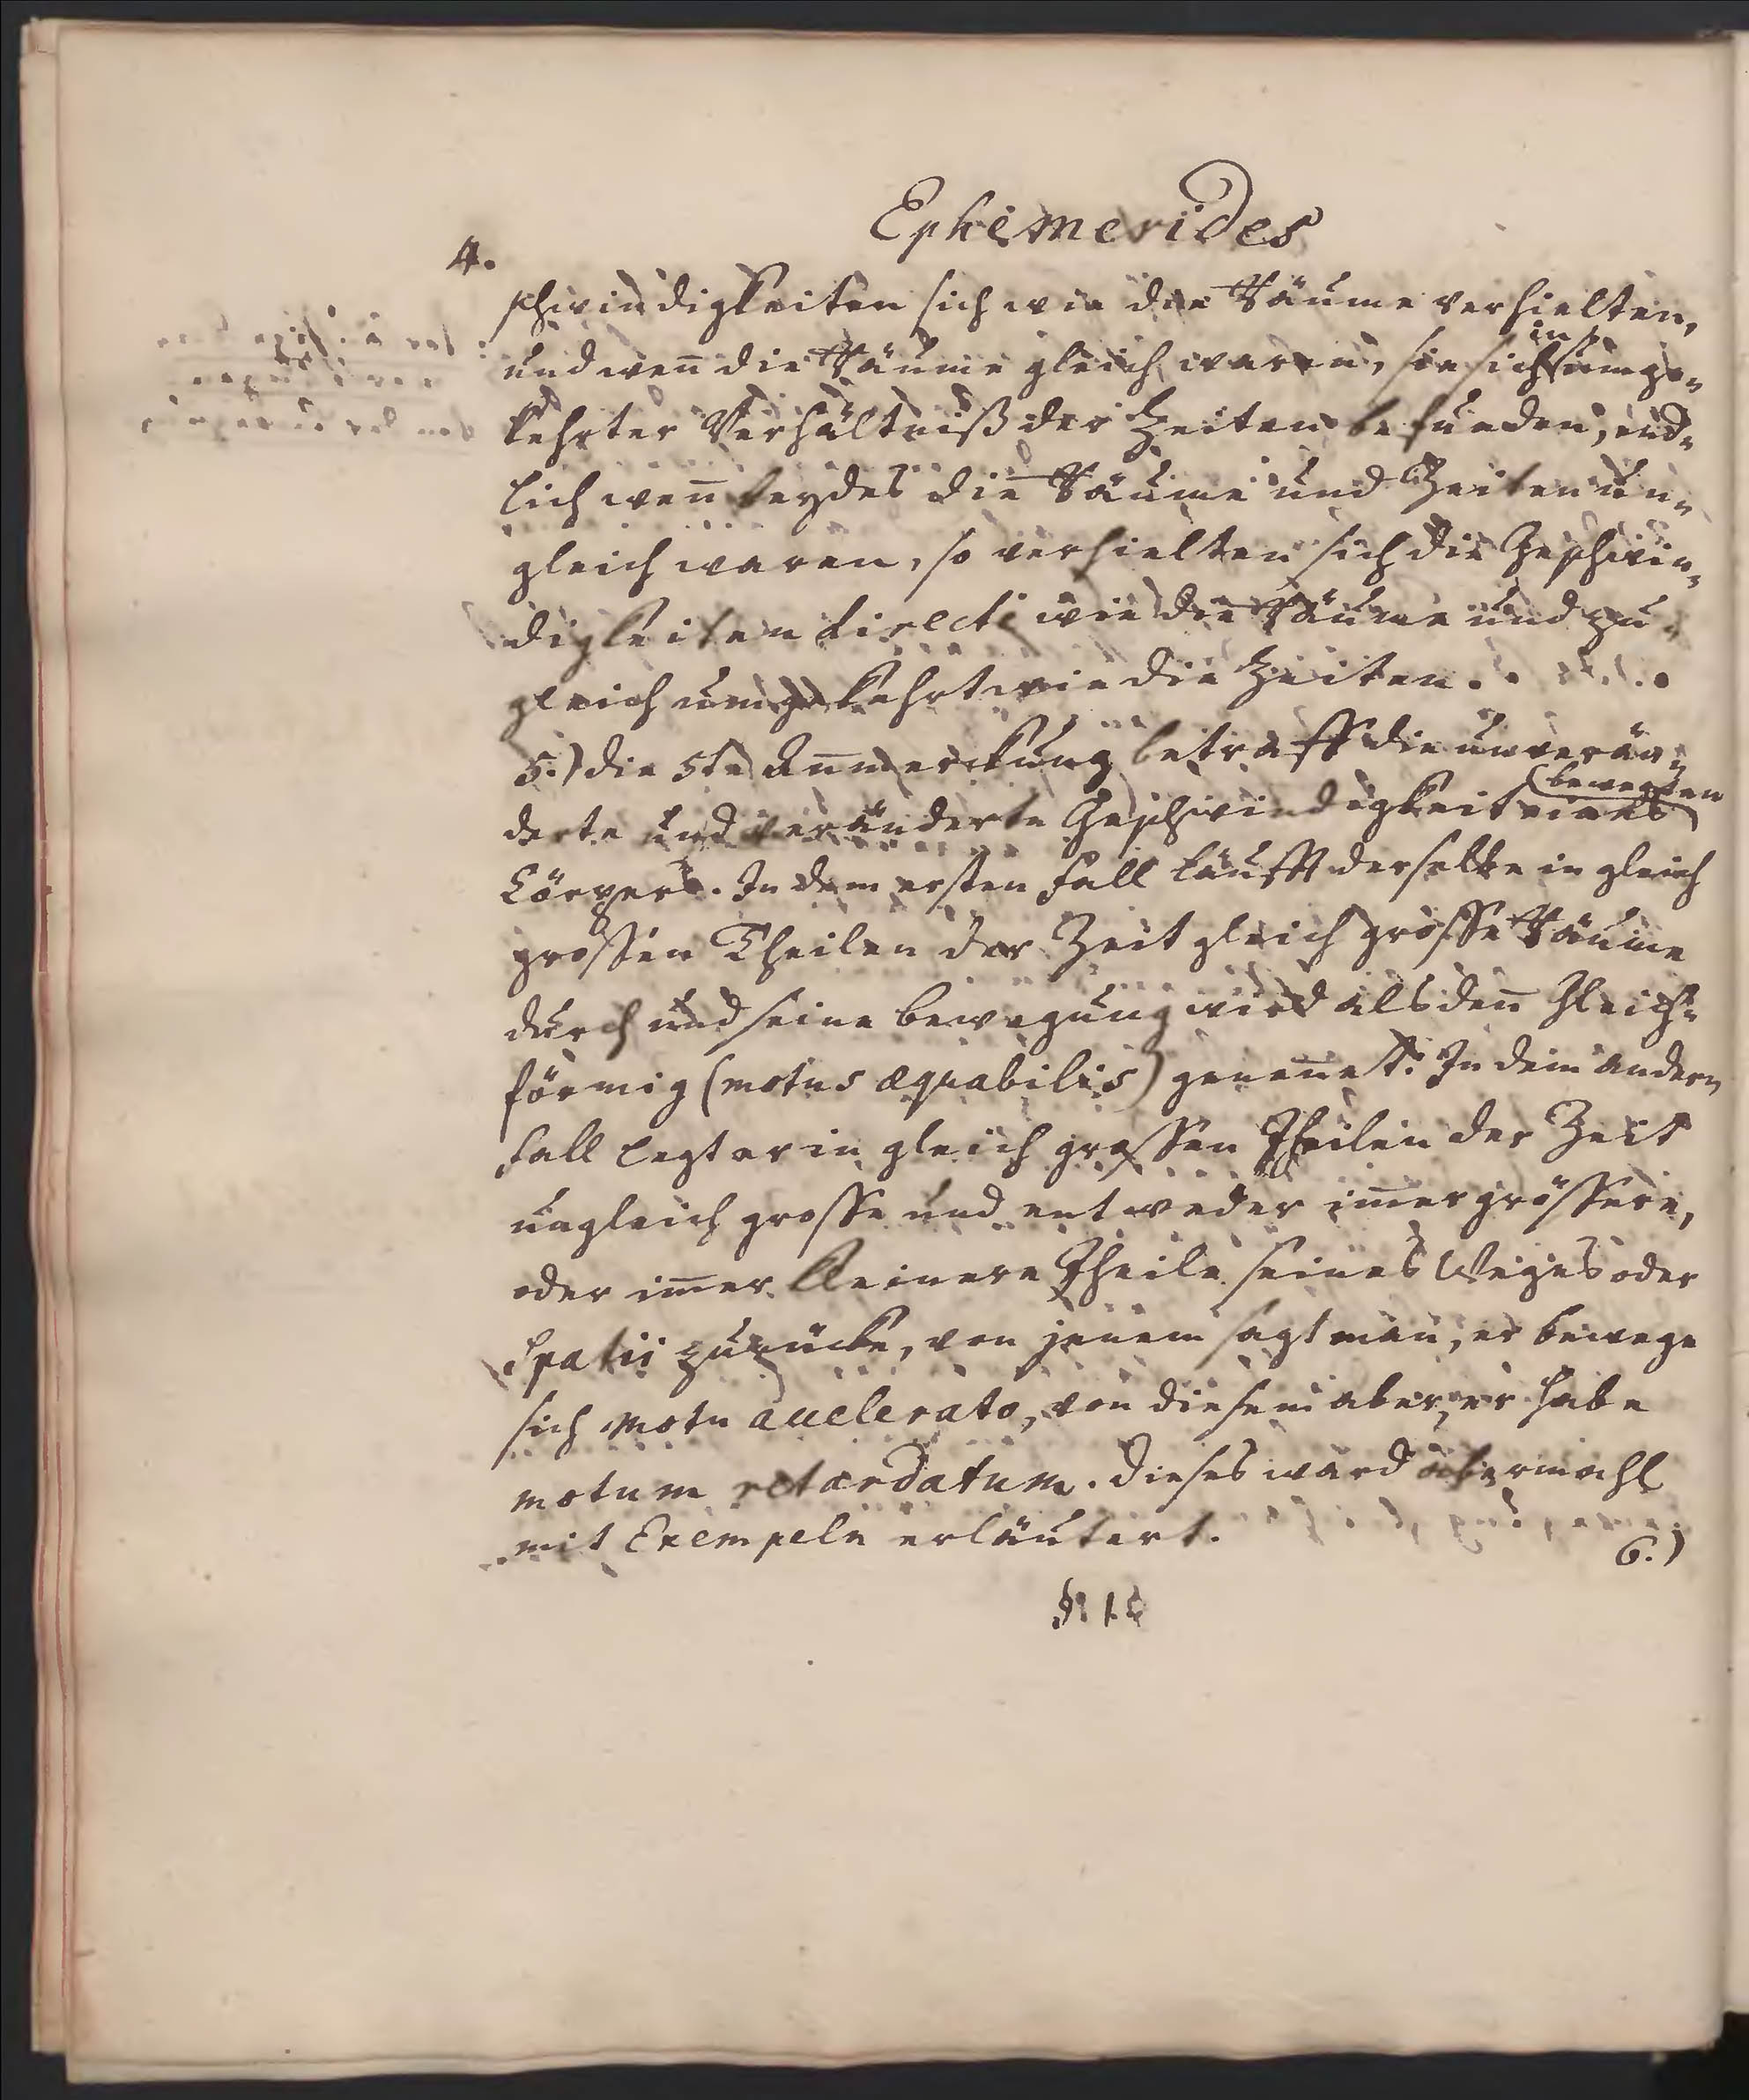 Ephemerides
4.
schwindigkeiten sich wie die Räume verhielten,
und wen̄ die Räume gleich waren, sie sich in umge-
kehrter Verhältniß der Zeiten befunden, end-
lich wen̄ beydes die Räume und Zeiten un-
gleich waren, so verhielten sich die Geschwin-
digkeiten directe wie die Räume und zu-
gleich umgekehrt wie die Zeiten.
5.) die 5te Anmerckung betraff die unverän-
derte und veränderte Geschwindigkeit eines bewegten
Cörpers. In dem ersten Fall läufft derselbe in gleich
grossen Theilen der Zeit gleich grosse Räume
durch und seine bewegung wird alsden̄ Gleich-
förmig (motus æquabilis) genen̄et. In dem andern
Fall legt er in gleich grossen Theilen der Zeit
ungleich grosse und entweder im̄er grössere,
oder im̄er kleinere Theile seines Weges oder
Spatii zurücke, von jenem sagt man, er bewege
sich motu accelerato, von diesem aber, er habe
motum retardatum. Dieses ward abermahl
mit Exempeln erläutert.
6.)